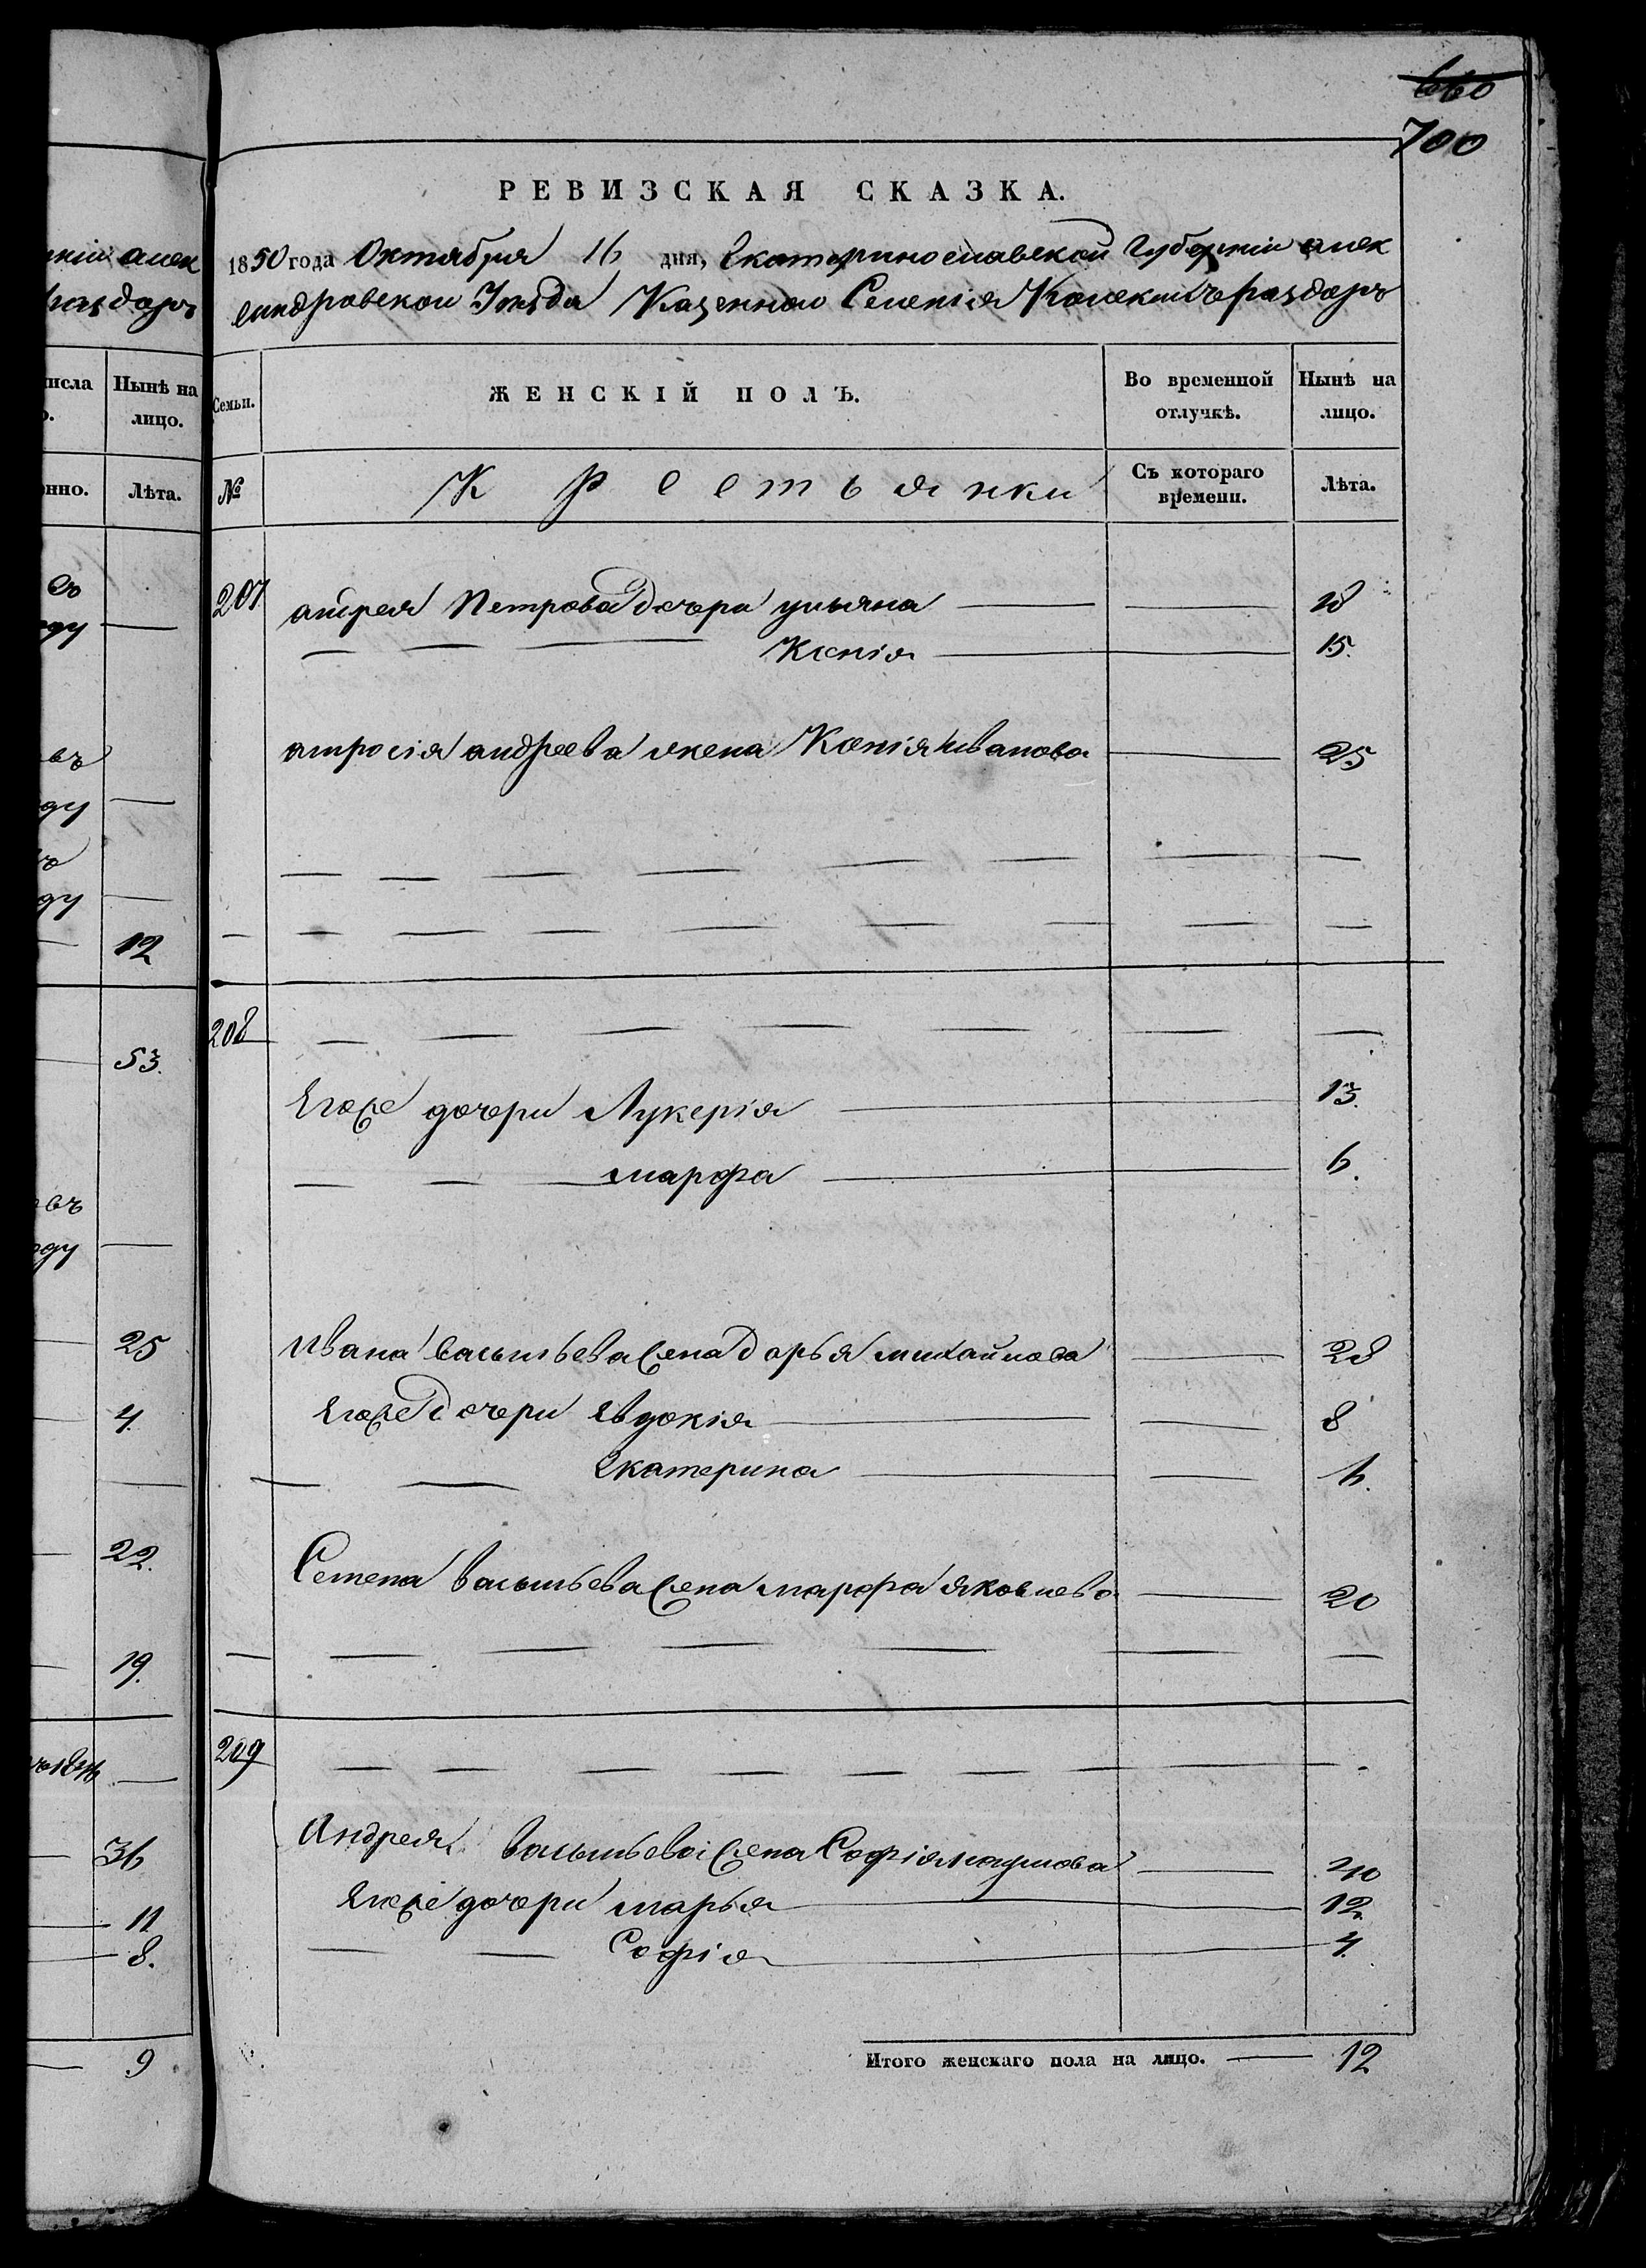 660
700
РЕВИЗСКАЯ СКАЗКА.
1850 года Октября 16 дня, Екатеринославской Губернии алек
сандровскои Уезда Казенном Селения Раздоръ
Семьи.
ЖЕНСКІЙ ПОЛЪ.
Во временной отлучкѣ.
Нынѣ на лицо.
№
Крестьянки
Съ котораго времени.
Лѣта.
207 Петрова дочери ульяна — — 18
— — — Ксенія — — 15.
андреева жена Ксенія иванова — 25
— — — — — — —
— — — — — — — — —
208 — — — — — — —
Егоже дочери Лукерія — — 13.
— — — марфа — — 6.
Ивана васильева жена дарья михайлова — 28
Егоже дочери Евдокія — — 8
— — Екатерина — — 6.
Семена васильева жена марфа яковлева — 20
— — — — — — —
209 — — — — — — —
Андрея васильева жена Софія наумова — 40
Егоже дочери марья — — 12.
— — Софія — — 4.
Итого женскаго пола на лицо. — 12
алек
раздоръ
числа
Нынѣ на лицо.
Лѣта.
ду —
ду —
ду —
— 12
— 53.
ду —
— 25
— 4.
—
— 22.
— 19.
—
— 36
— 11
— 8.
— 9